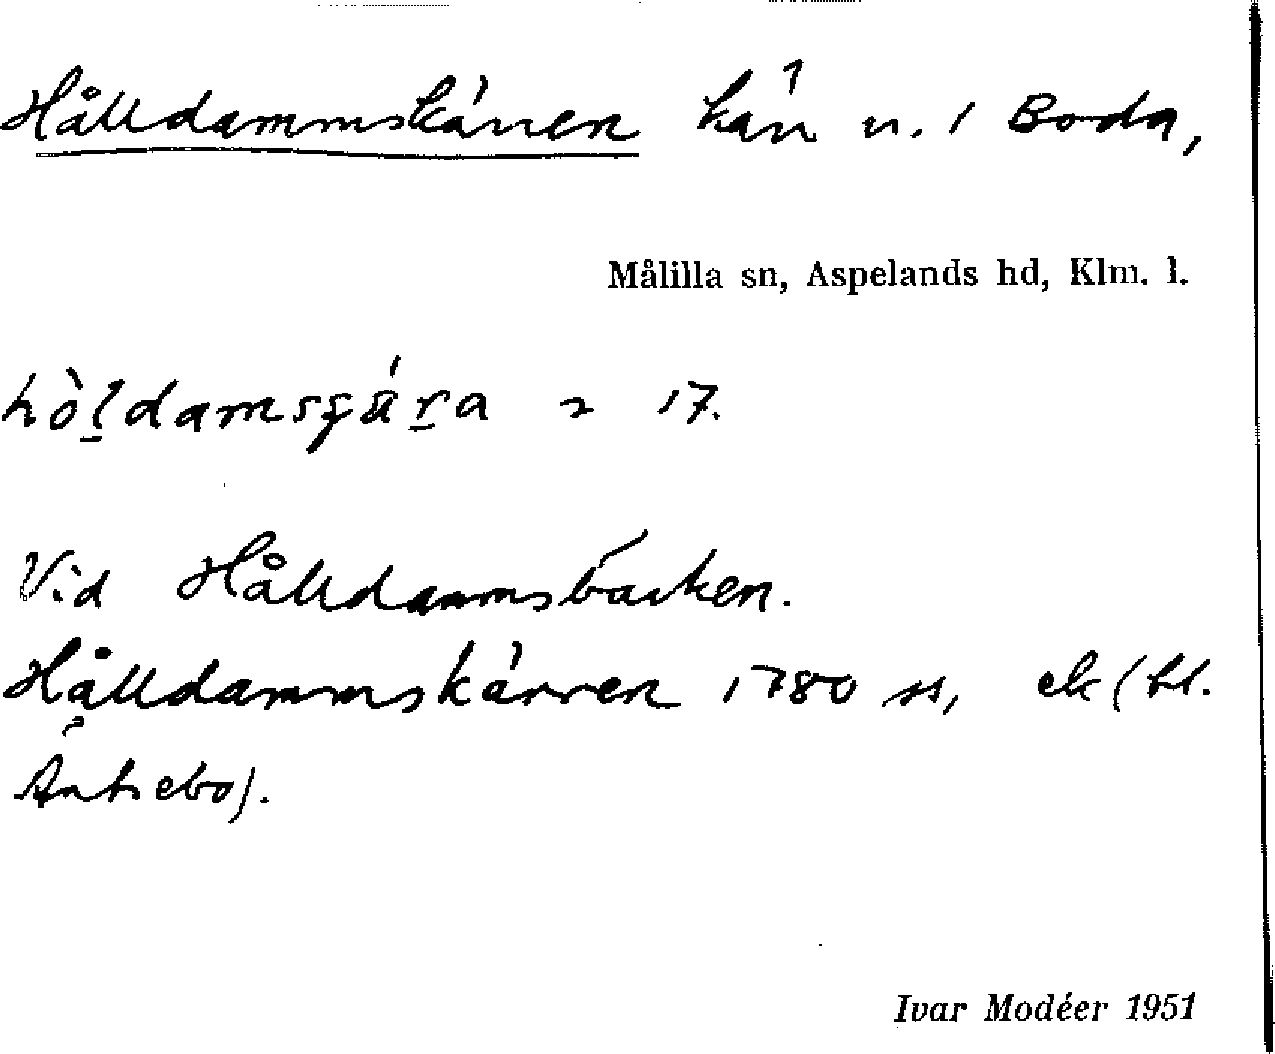 Hålldammskärren kärr n. i Boda,
Målilla sn, Aspelands hd, Klm. l.
hòl̠damsɟä́r̠a 2 17.
Vid Hålldammsbacken.
Hålldammskärren 1780 ek (bl.